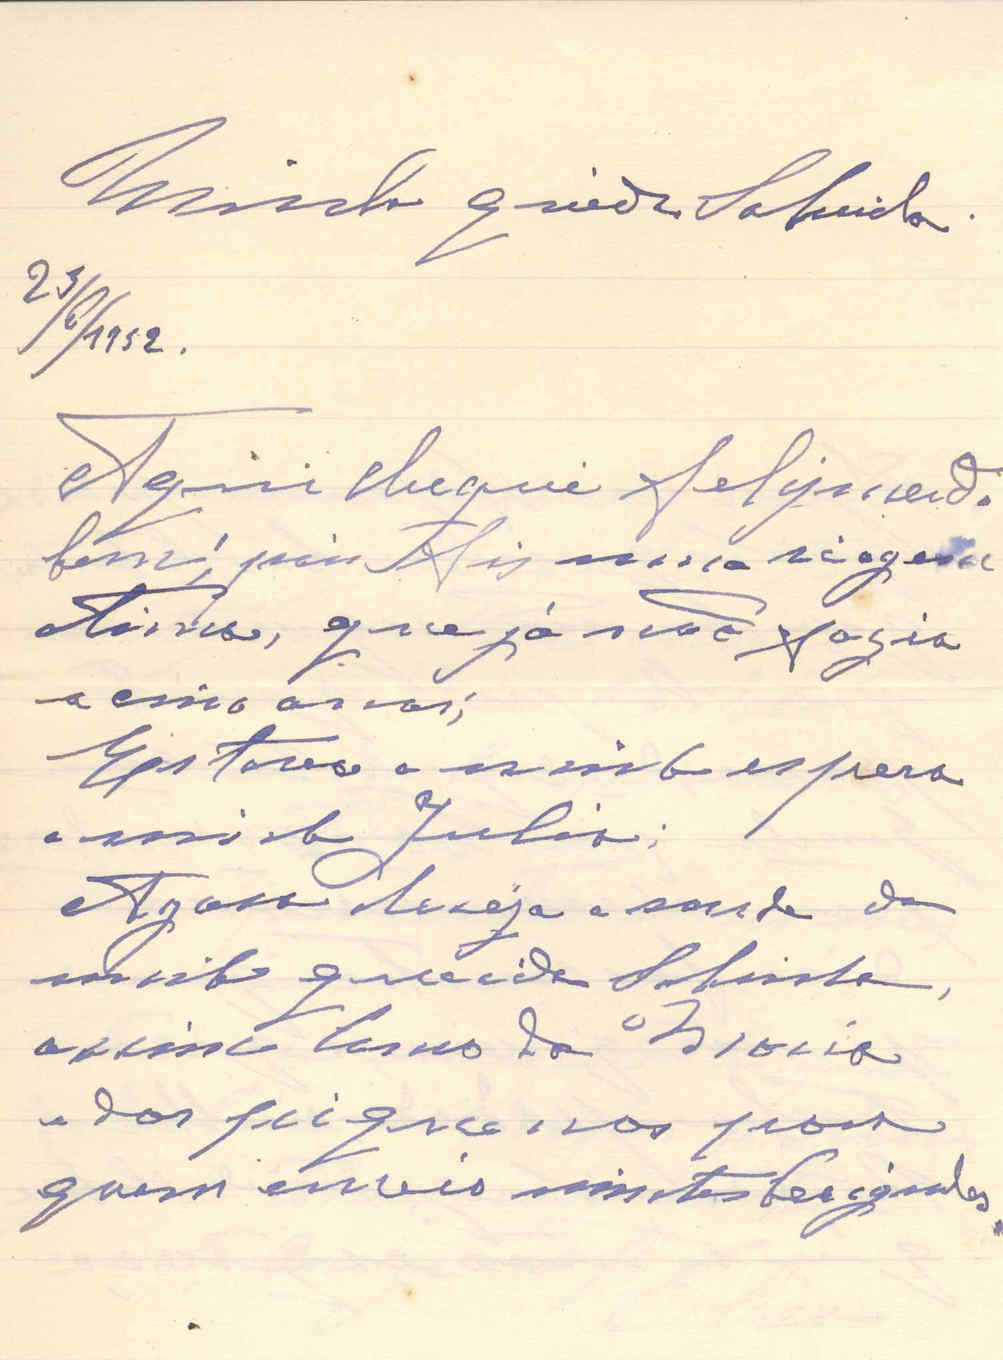 Minha querida Sobrinha.
23/6/1952.
Aqui cheguei felizmente
bem, pois fis uma viagem
otima, que já não fazia
a cinco anos;
Estava a minha espera
a minha Julia;
Agora desejo a saude da
minha querida Sobrinha,
assim como da Maria
e dos piquenos para
quem envio muitos beijinhos.